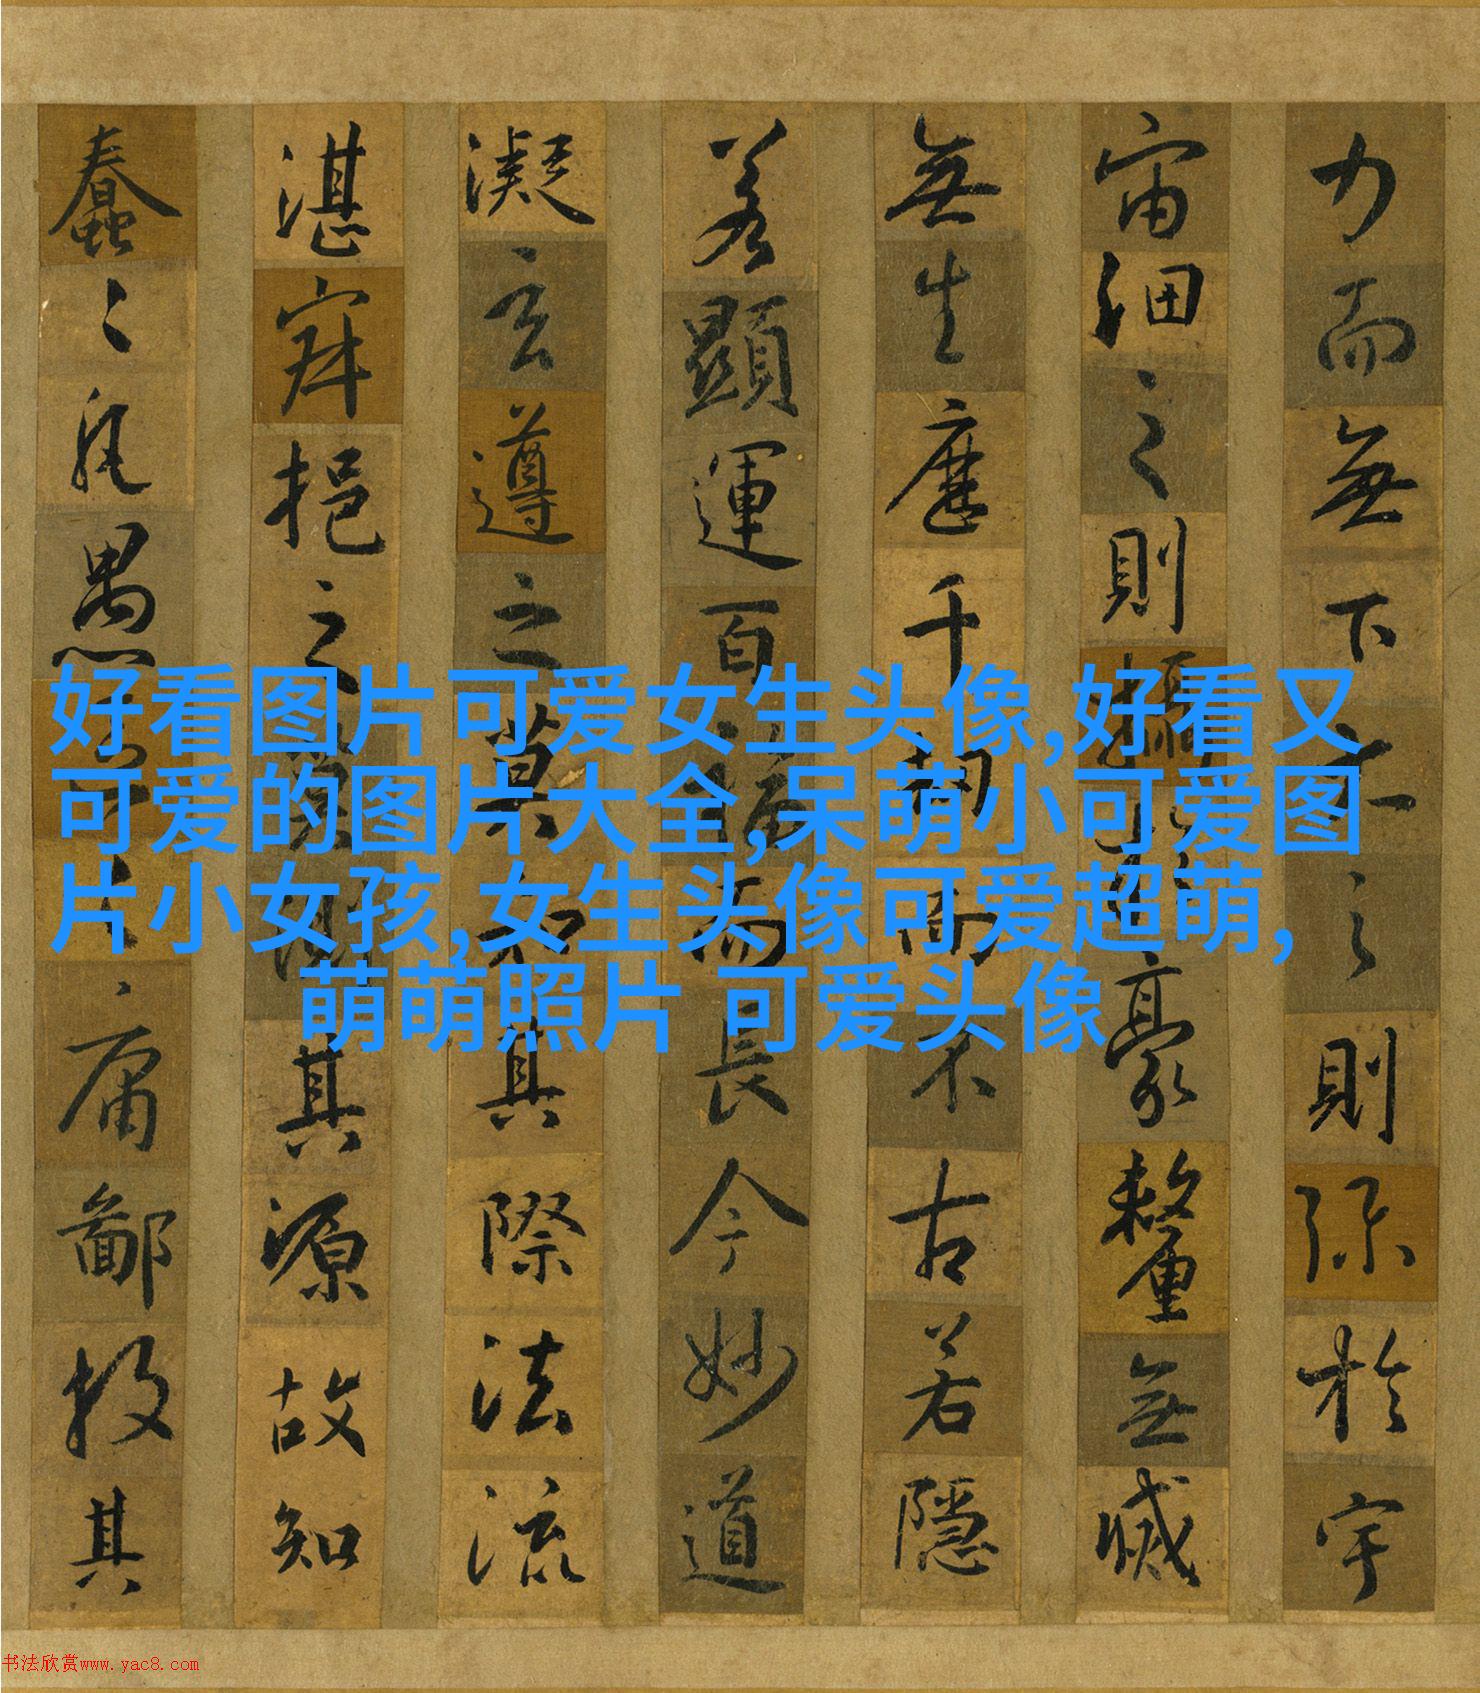 力而無下大之則弥於宇
宙細之則攝於豪釐無滅
無生歷千劫而不古若隱
若顯運百福而長今妙道
凝玄遵之莫知其際法流
湛寂挹之莫測其源故知
蠢〻凡愚區〻庸鄙投其
好看图片可爱女生头像,好看又
可爱的图片大全,呆萌小可爱图
片小女孩,女生头像可爱超萌,
萌萌照片 可爱头像
书法欣赏www.yac8.com